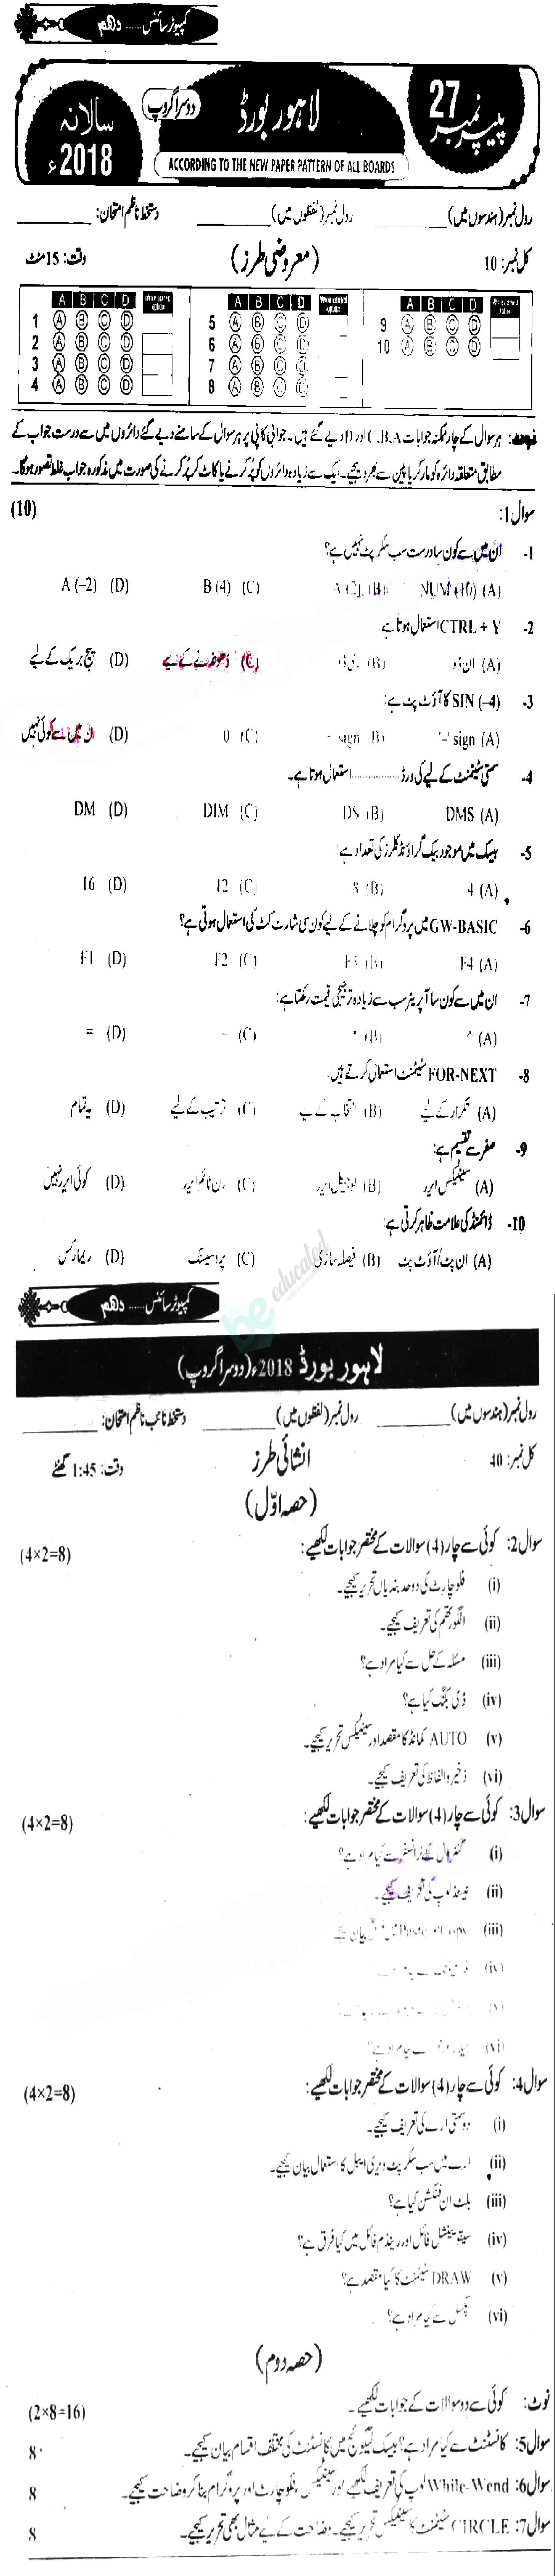 کمپیوٹر سائنس ..... دہم
پیپر نمبر 27
لاہور بورڈ
دوسرا گروپ
سالانہ 2018ء
ACCORDING TO THE NEW PAPER PATTERN OF ALL BOARDS
رول نمبر (ہندسوں میں) ________ رول نمبر (لفظوں میں) ________ دستخط ناظم امتحان: ________
کل نمبر: 10 (معروضی طرز) وقت: 15 منٹ
A B C D A B C D A B C D
1 A B C D 5 A B C D 9 A B C D
2 A B C D 6 A B C D 10 A B C D
3 A B C D 7 A B C D
4 A B C D 8 A B C D
نوٹ: ہر سوال کے چار ممکنہ جوابات C،B،A اور D دیے گئے ہیں۔ جوابی کاپی پر ہر سوال کے سامنے دیے گئے دائروں میں سے درست جواب کے
مطابق متعلقہ دائرہ کو مارکر یا پین سے بھر دیجیے۔ ایک سے زیادہ دائروں کو پُر کرنے یا کاٹ کر پُر کرنے کی صورت میں مذکورہ جواب غلط تصور ہوگا۔
سوال 1: (10)
1- ان میں سے کون سا درست سب سکرپٹ نہیں ہے؟
(A) NUM (10) (B) A (2) (C) B (4) (D) A (–2)
2- CTRL + Y استعمال ہوتا ہے
(A) ان ڈو (B) ری ڈو (C) ڈھونڈنے کے لیے (D) پیج بریک کے لیے
3- SIN (–4) کا آؤٹ پٹ ہے:
(A) '–' sign (B) sign (C) 0 (D) ان میں سے کوئی نہیں
4- سمتی سٹیٹمنٹ کے لیے کی ورڈ .............. استعمال ہوتا ہے۔
(A) DMS (B) DS (C) DIM (D) DM
5- بیسک میں موجود بیک گراؤنڈ کلرز کی تعداد ہے:
(A) 4 (B) 8 (C) 12 (D) 16
6- GW-BASIC میں پروگرام کو چلانے کے لیے کون سی شارٹ کٹ کی استعمال ہوتی ہے؟
(A) F4 (B) F3 (C) F2 (D) F1
7- ان میں سے کون سا آپریٹر سب سے زیادہ ترجیحی قیمت رکھتا ہے:
(A) ^ (B) * (C) – (D) =
8- FOR-NEXT سٹیٹمنٹ استعمال کرتے ہیں:
(A) تکرار کے لیے (B) انتخاب کے لیے (C) ترتیب کے لیے (D) یہ تمام
9- صفر سے تقسیم ہے:
(A) سینٹیکس ایرر (B) لوجیکل ایرر (C) رن ٹائم ایرر (D) کوئی ایرر نہیں
10- ڈائمنڈ کی علامت ظاہر کرتی ہے:
(A) ان پٹ/آؤٹ پٹ (B) فیصلہ سازی (C) پروسیسنگ (D) ریمارکس
be educated
کمپیوٹر سائنس ..... دہم
لاہور بورڈ 2018ء (دوسرا گروپ)
رول نمبر (ہندسوں میں) ________ رول نمبر (لفظوں میں) ________ دستخط نائب ناظم امتحان: ________
کل نمبر: 40 انشائی طرز وقت: 1:45 گھنٹے
(حصہ اوّل)
سوال 2: کوئی سے چار (4) سوالات کے مختصر جوابات لکھیے: (4×2=8)
(i) فلو چارٹ کی دو حد بندیاں تحریر کیجیے۔
(ii) الگورتھم کی تعریف کیجیے۔
(iii) مسئلہ کے حل سے کیا مراد ہے؟
(iv) ڈی بگنگ کیا ہے؟
(v) AUTO کمانڈ کا مقصد اور سینٹیکس تحریر کیجیے۔
(vi) ذخیرہ الفاظ کی تعریف کیجیے۔
سوال 3: کوئی سے چار (4) سوالات کے مختصر جوابات لکھیے: (4×2=8)
(i) کنٹرول کے ٹرانسفر سے کیا مراد ہے؟
(ii) نیسٹڈ لوپ کی تعریف کیجیے۔
(iii) Copy Paste میں فرق بیان کیجیے
(iv)
(v)
(vi) سے کیا مراد ہے؟
سوال 4: کوئی سے چار (4) سوالات کے مختصر جوابات لکھیے: (4×2=8)
(i) دو سمتی ارے کی تعریف کیجیے۔
(ii) ارے میں سب سکرپٹ ویری ایبل کا استعمال بیان کیجیے۔
(iii) بلٹ ان فنکشن کیا ہے؟
(iv) سیکوینشل فائل اور رینڈم فائل میں کیا فرق ہے؟
(v) DRAW سٹیٹمنٹ کا کیا مقصد ہے؟
(vi) پکسل سے کیا مراد ہے؟
(حصہ دوم)
نوٹ: کوئی سے دو سوالات کے جوابات لکھیے۔ (2×8=16)
سوال 5: کانسٹنٹ سے کیا مراد ہے؟ بیسک لینگوئج میں کانسٹنٹ کی مختلف اقسام بیان کیجیے۔ 8
سوال 6: While-Wend لوپ کی تعریف لکھیے اور سینٹیکس، فلو چارٹ اور پروگرام بنا کر وضاحت کیجیے۔ 8
سوال 7: CIRCLE سٹیٹمنٹ کا سینٹیکس تحریر کیجیے۔ وضاحت کے لیے مثال بھی تحریر کیجیے۔ 8